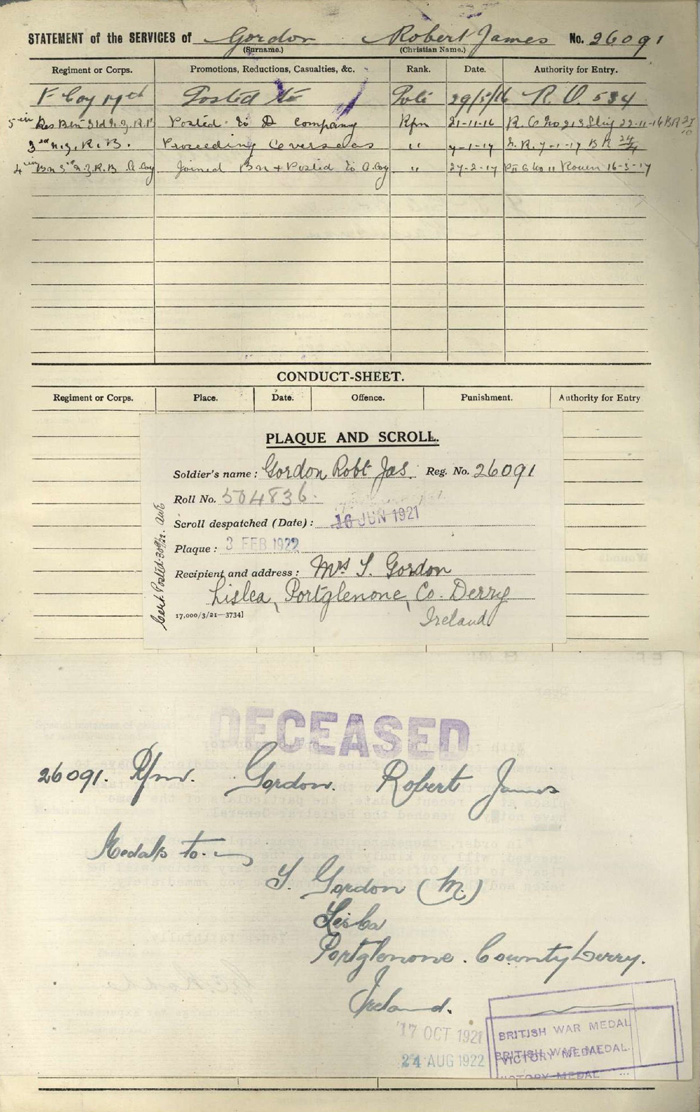 STATEMENT of the SERVICES of Gordon Robert James No. 26091
(Surname.) (Christian Name.)
Regiment or Corps. Promotions, Reductions, Casualties, &c. Rank. Date. Authority for Entry.
F Coy Posted to 29/5/16 R. O. 534
Posted to D Company Rfn 21-11-16
3rd N.Z.R.B. Proceeding Overseas " 7-1-17
4th Bn 3rd N.Z.R.B. A Coy Joined Bn & Posted to A Coy " 27-2-17 Rouen 16-3-17
CONDUCT-SHEET.
Regiment or Corps. Place. Date. Offence. Punishment. Authority for Entry
PLAQUE AND SCROLL.
Soldier's name: Gordon Robt Jas. Reg. No. 26091
Roll No. 504836.
Scroll despatched (Date): 16 JUN 1921
Plaque: 3 FEB 1922
Recipient and address: Mrs S. Gordon
Lislea, Portglenone, Co. Derry
Ireland
17,000/3/21—3734]
DECEASED
26091. Rfmn. Gordon. Robert James
Medals to.
S. Gordon (M)
Portglenone. County Derry.
Ireland.
17 OCT 1921
24 AUG 1922
BRITISH WAR MEDAL
BRITISH WAR MEDAL
VICTORY MEDAL
VICTORY MEDAL